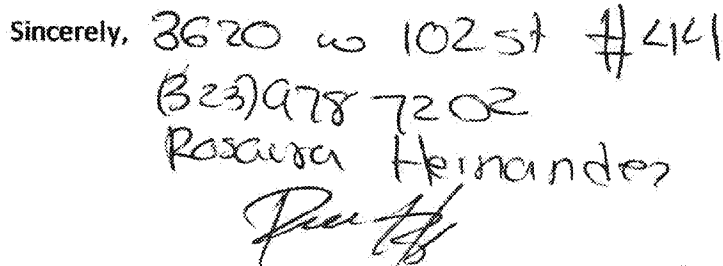 Sincerely, 3620 w 102 st #44
(323)978 7202
Rosaura Hernandez